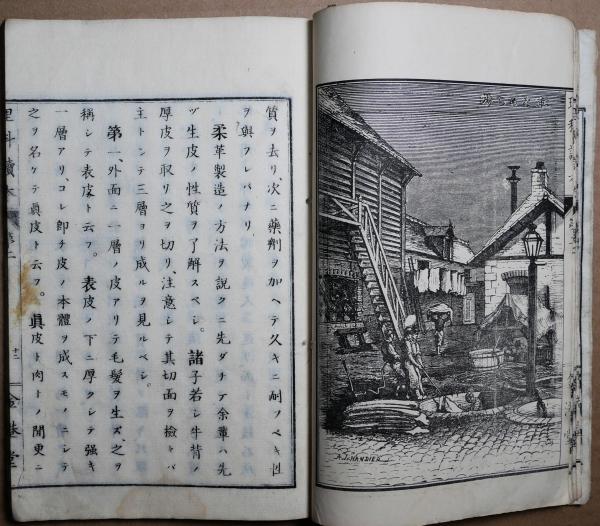 質ヲ去リ、次ニ藥劑ヲ加ヘテ久キニ耐フベキ因
ヲ與フレバナリ
柔革製造ノ方法ヲ說クニ先ダチテ余輩ハ先
ヅ生皮ノ性質ヲ了解スベシ。諸子若シ牛犢ノ
厚皮ヲ取リ之ヲ切リ、注意シテ其切面ヲ檢セバ
主トシテ三層ヨリ成ルヲ見ルベシ。
第一、外面ニ一層ノ皮アリテ毛髮ヲ生ズ、之ヲ
稱シテ表皮ト云フ。表皮ノ下ニ厚クシテ強キ
一層アリ、コレ即チ皮ノ本體ヲ成スモノニシテ
之ヲ名ケテ眞皮ト云フ。眞皮ト肉トノ間更ニ
理科讀本 第二